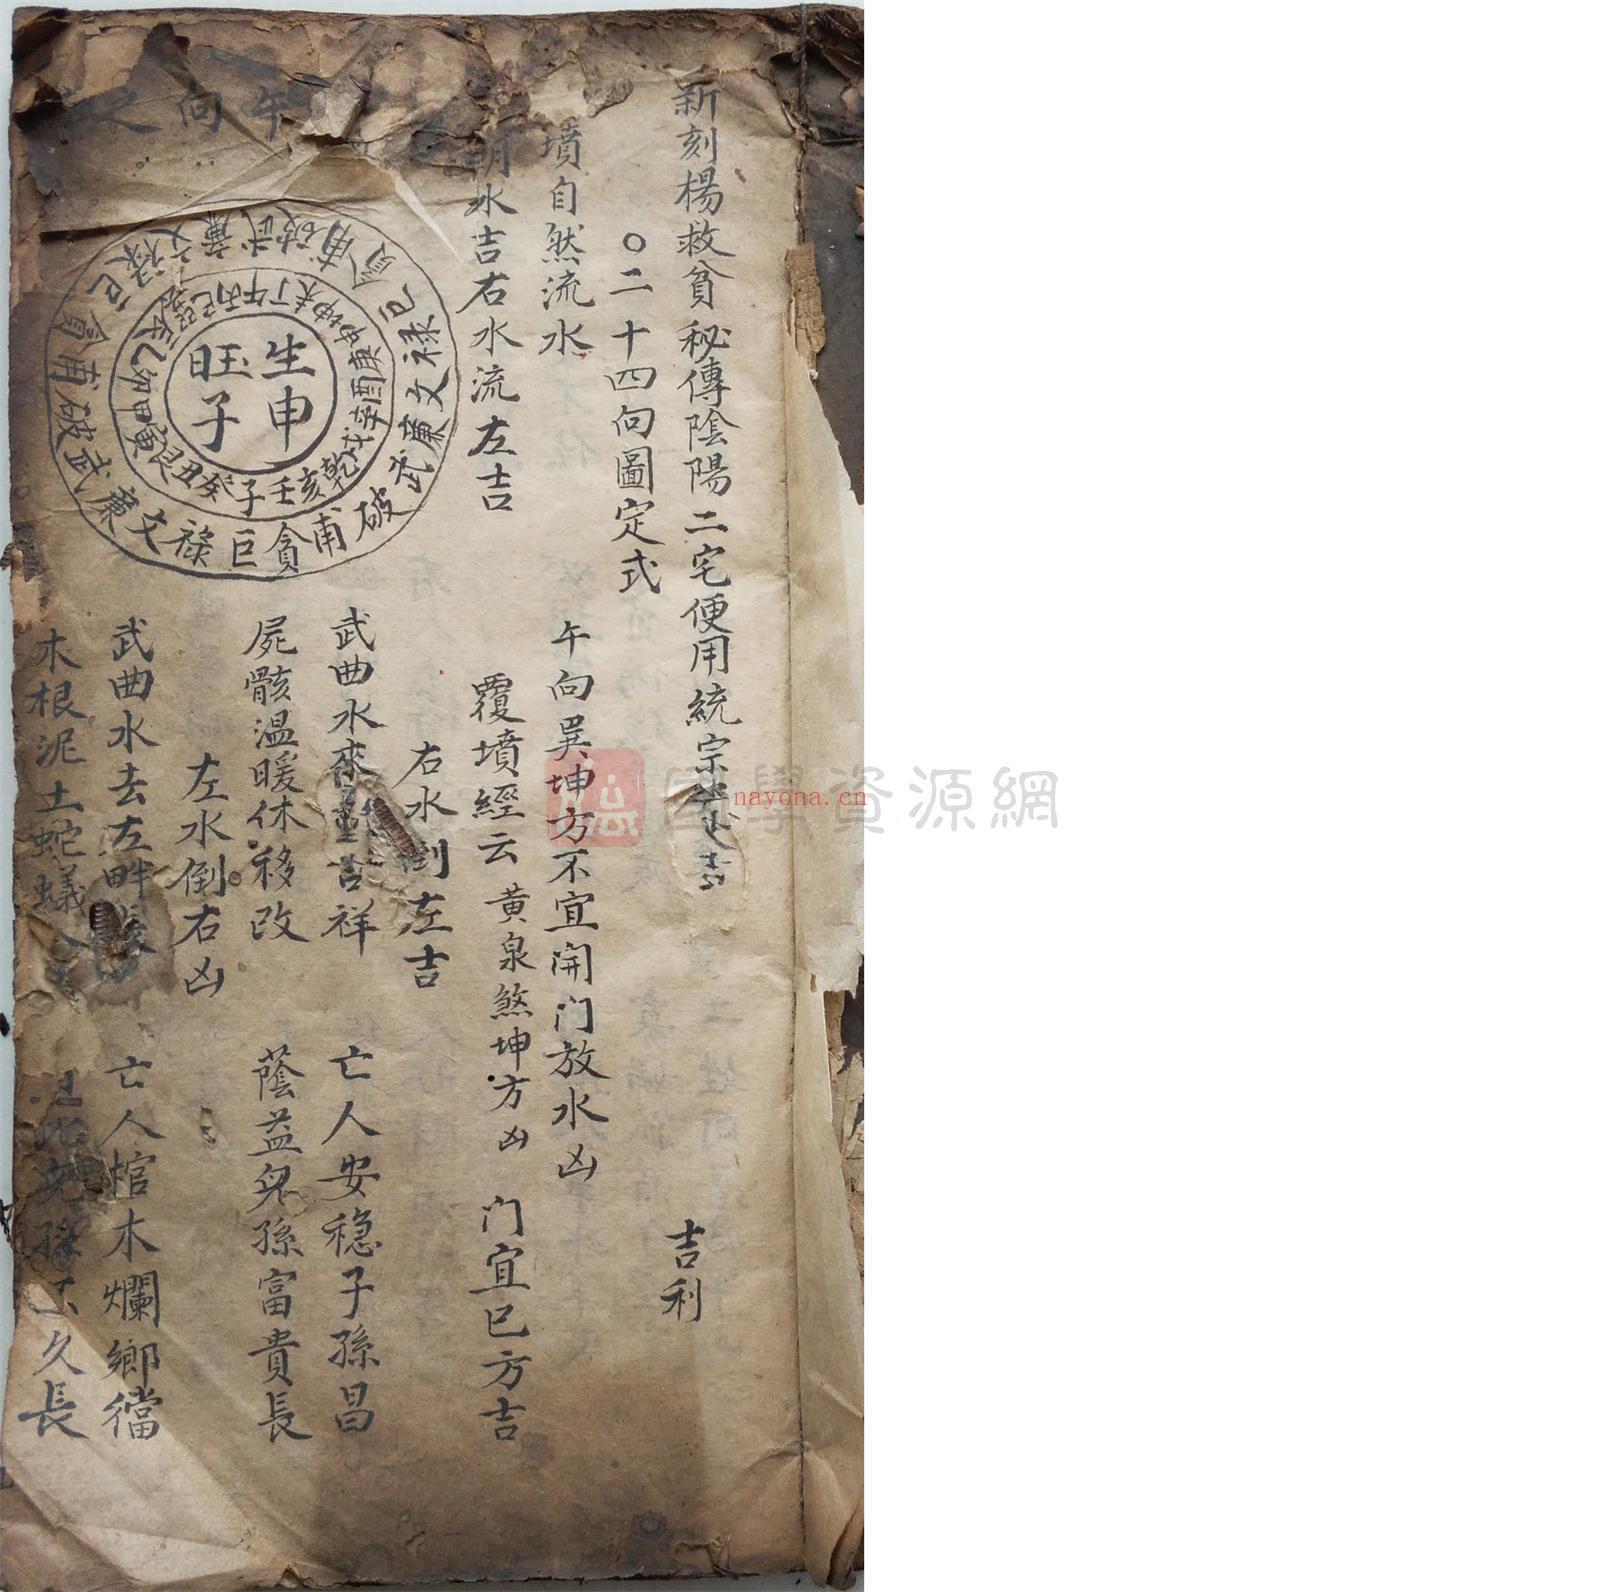 新刻楊救貧秘傳陰陽二宅便用統宗
吉利
○二十四向圖定式
墳自然流水
午向巽坤方不宜開门放水凶
水吉右水流左吉
覆墳經云黃泉煞坤方凶 门宜巳方吉
右水倒左吉
武曲水來 吉祥
亡人安穩子孫昌
屍骸温暖休移改
蔭益兒孫富貴長
左水倒右凶
武曲水去左畔
亡人棺木爛鄉檔
木根泥土蛇蟻
孫不久長
午向之
生申
旺子
壬子癸丑艮寅甲卯乙辰巽巳丙午丁未坤申庚酉辛戌乾亥
貪巨祿文廉武破甫貪巨祿文廉武破甫貪巨祿文廉武破甫
國學資源網
nayona.cn